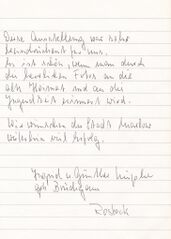 Diese Ausstellung war sehr
beeindruckend für uns.
Es ist schön, wenn man durch
die herrlichen Fotos an die
alte Heimat und an die
Jugendzeit erinnert wird.
Wir wünschen der Stadt
weiterhin viel Erfolg.
u. Günther
geb.
Rostock